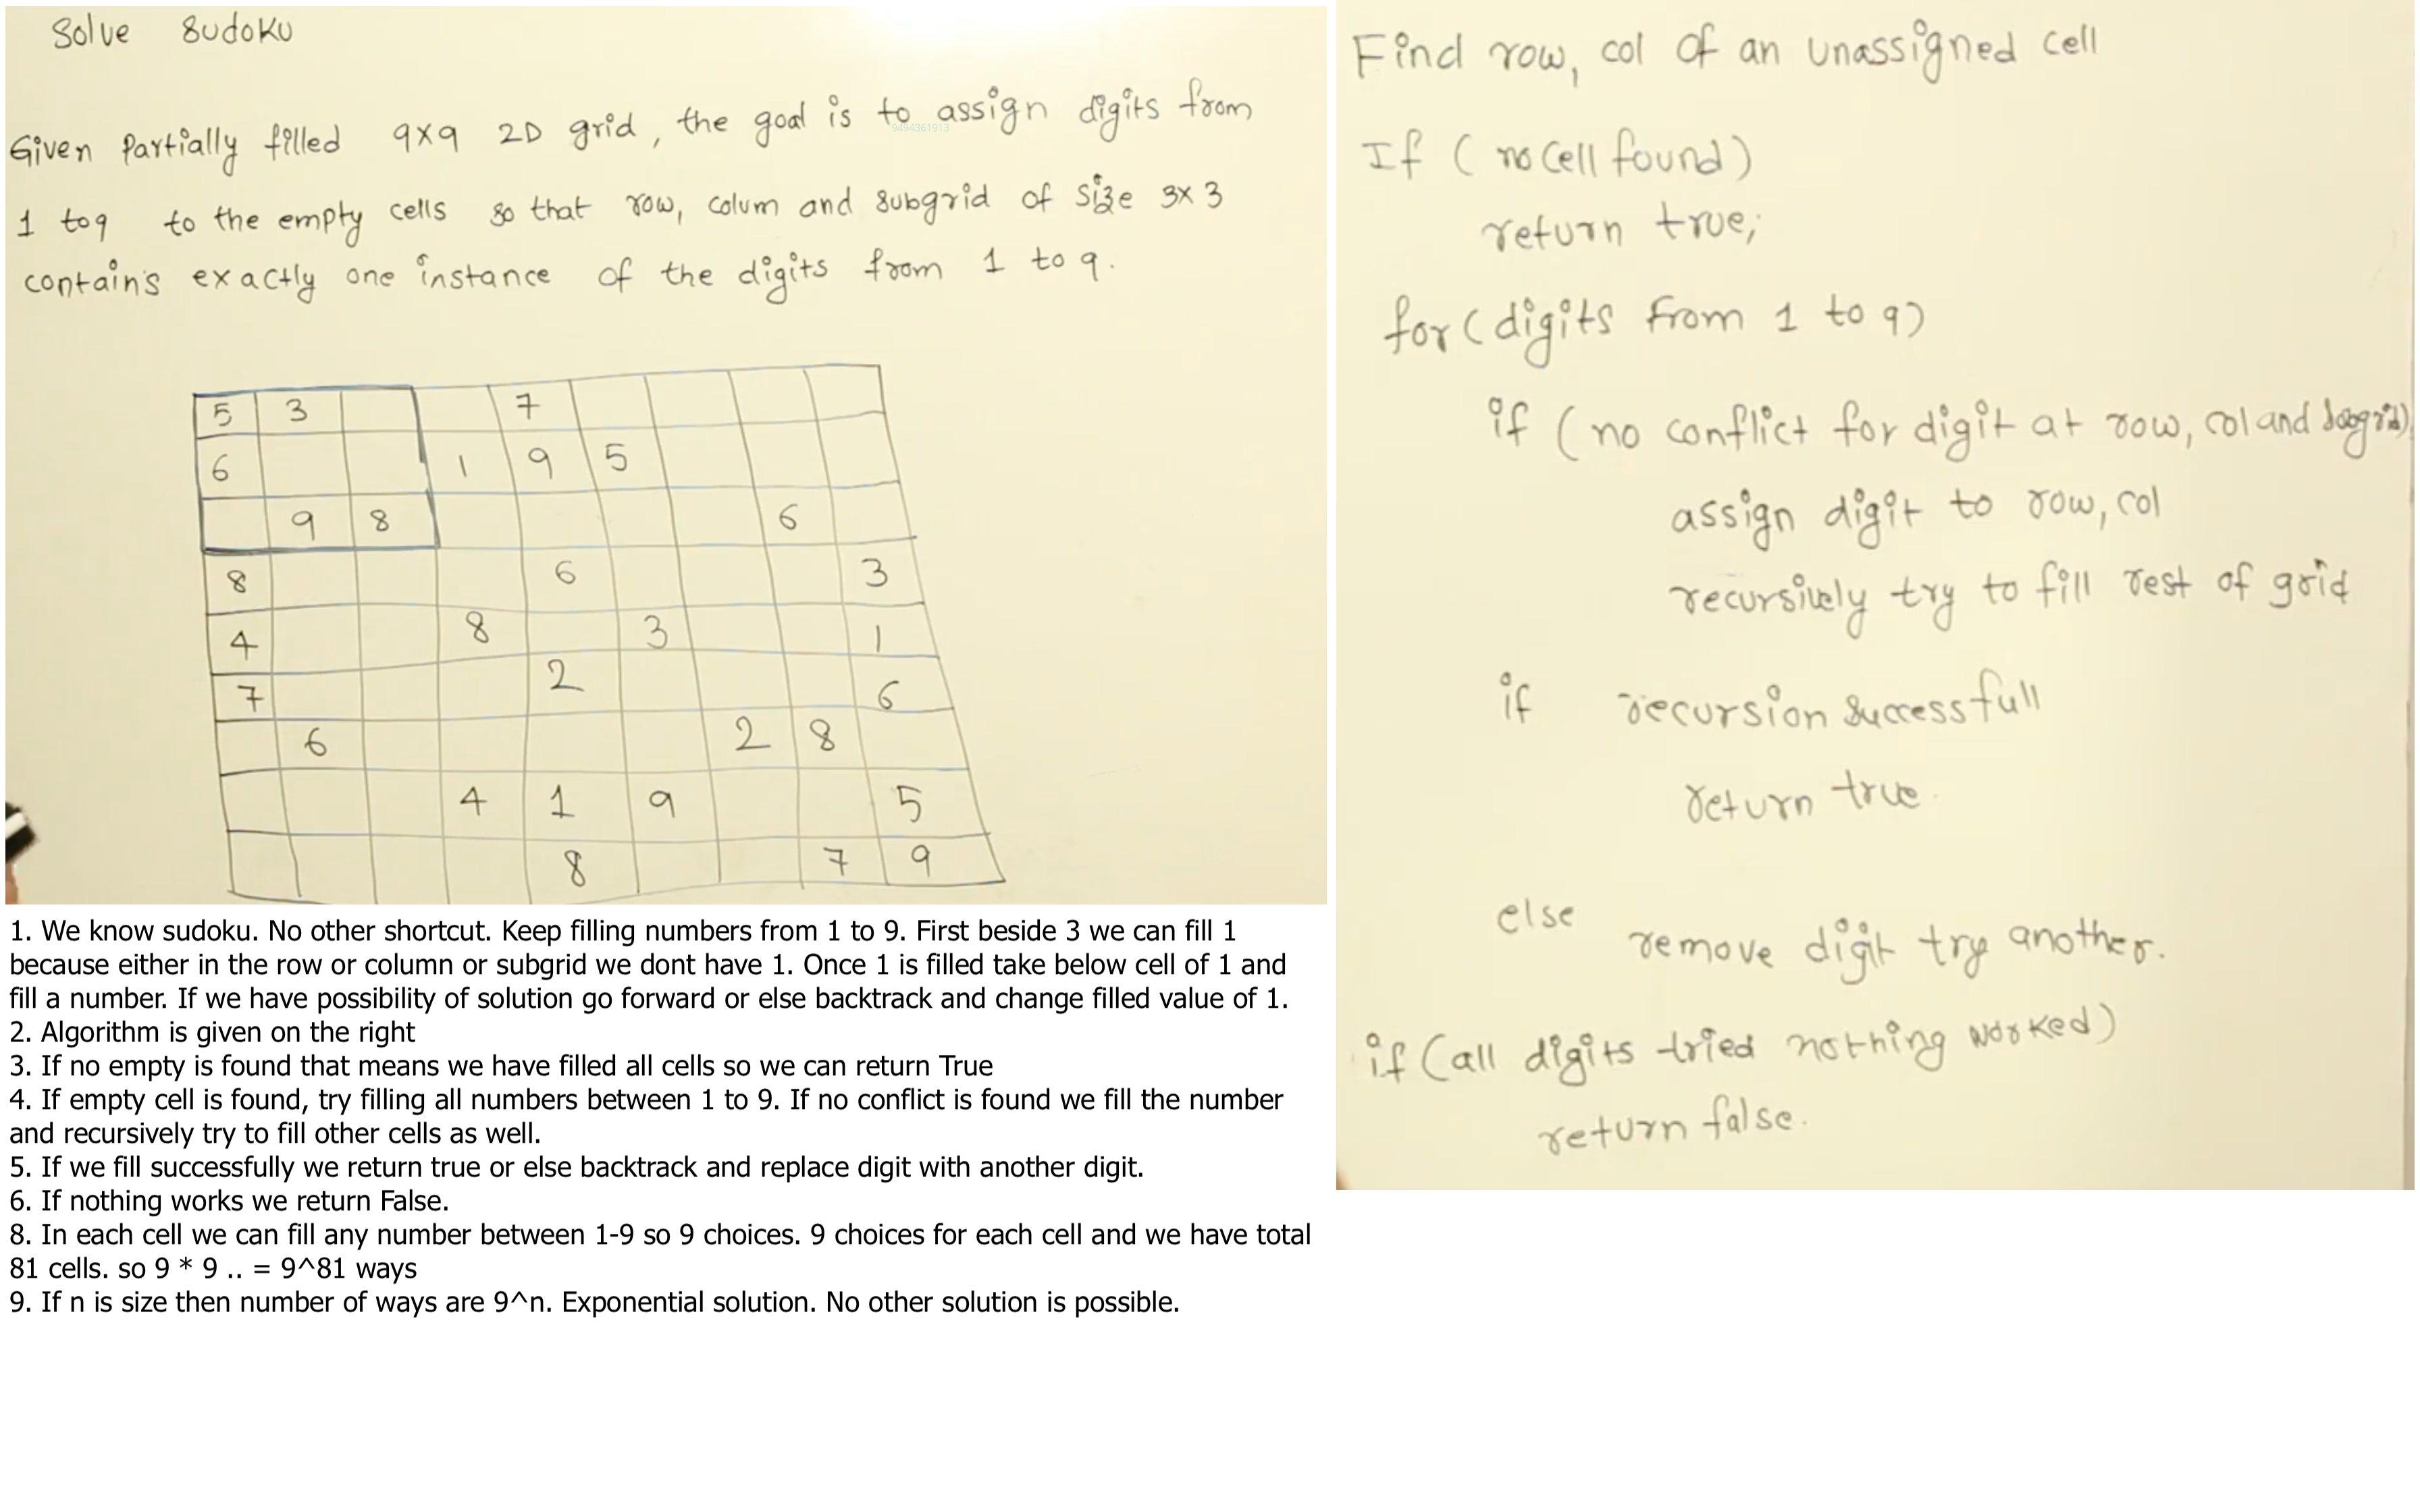 Solve Sudoku
Given Partially filled 9x9 2D grid, the goal is to assign digits from
9494361913
1 to 9 to the empty cells so that row, colum and subgrid of size 3x3
contains exactly one instance of the digits from 1 to 9.
5 3 7
6 1 9 5
9 8 6
8 6 3
4 8 3 1
7 2 6
6 2 8
4 1 9 5
8 7 9
1. We know sudoku. No other shortcut. Keep filling numbers from 1 to 9. First beside 3 we can fill 1
because either in the row or column or subgrid we dont have 1. Once 1 is filled take below cell of 1 and
fill a number. If we have possibility of solution go forward or else backtrack and change filled value of 1.
2. Algorithm is given on the right
3. If no empty is found that means we have filled all cells so we can return True
4. If empty cell is found, try filling all numbers between 1 to 9. If no conflict is found we fill the number
and recursively try to fill other cells as well.
5. If we fill successfully we return true or else backtrack and replace digit with another digit.
6. If nothing works we return False.
8. In each cell we can fill any number between 1-9 so 9 choices. 9 choices for each cell and we have total
81 cells. so 9 * 9 .. = 9^81 ways
9. If n is size then number of ways are 9^n. Exponential solution. No other solution is possible.
Find row, col of an unassigned cell
If ( no cell found)
return true;
for (digits from 1 to 9)
if ( no conflict for digit at row, col and subgrid)
assign digit to row, col
recursively try to fill rest of grid
if recursion successfull
return true.
else
remove digit try another.
if (all digits tried nothing worked)
return false.